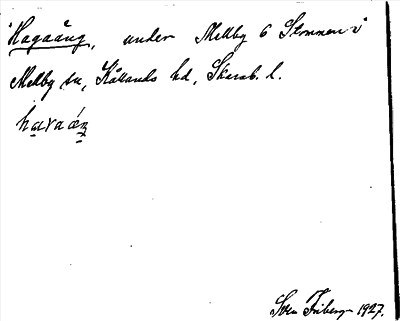 'Hagaång, under Mellby 6 Stommen i
Mellby sn, Kållands hd, Skarab. l.
havaáŋ
Sven Friberg 1927.